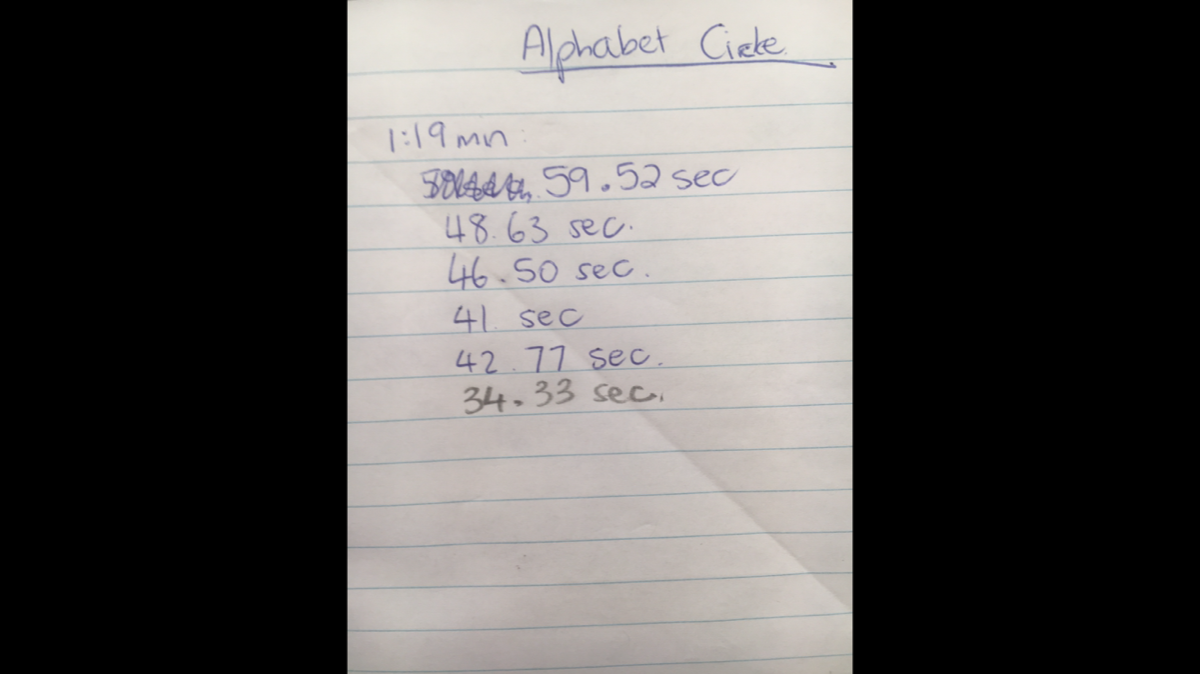 Alphabet Circle.
1:19 min:
59.52 sec
48.63 sec.
46.50 sec.
41 sec
42.77 sec.
34.33 sec.